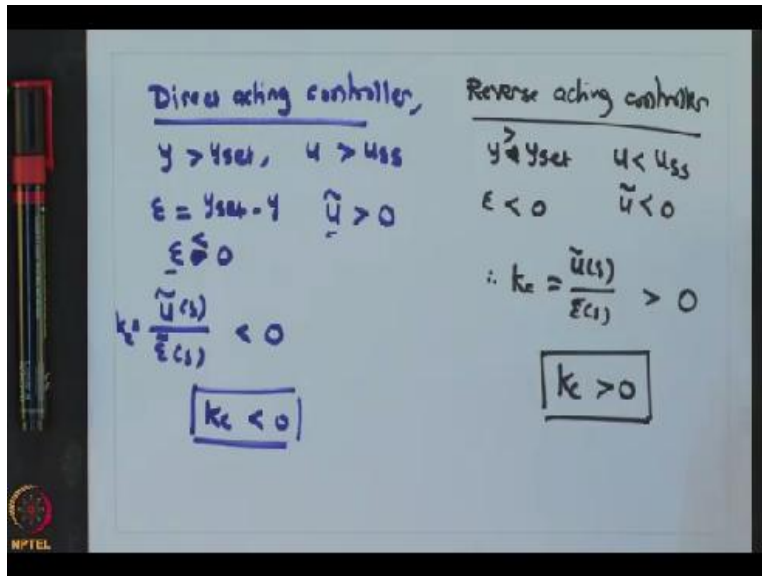 Direct acting controller,
y > yset, u > uss
ε = yset - y ũ > 0
ε < 0
kc = ũ(s) / ε̃(s) < 0
kc < 0
Reverse acting controller
y > yset u < uss
ε < 0 ũ < 0
∴ kc = ũ(s) / ε̃(s) > 0
kc > 0
NPTEL